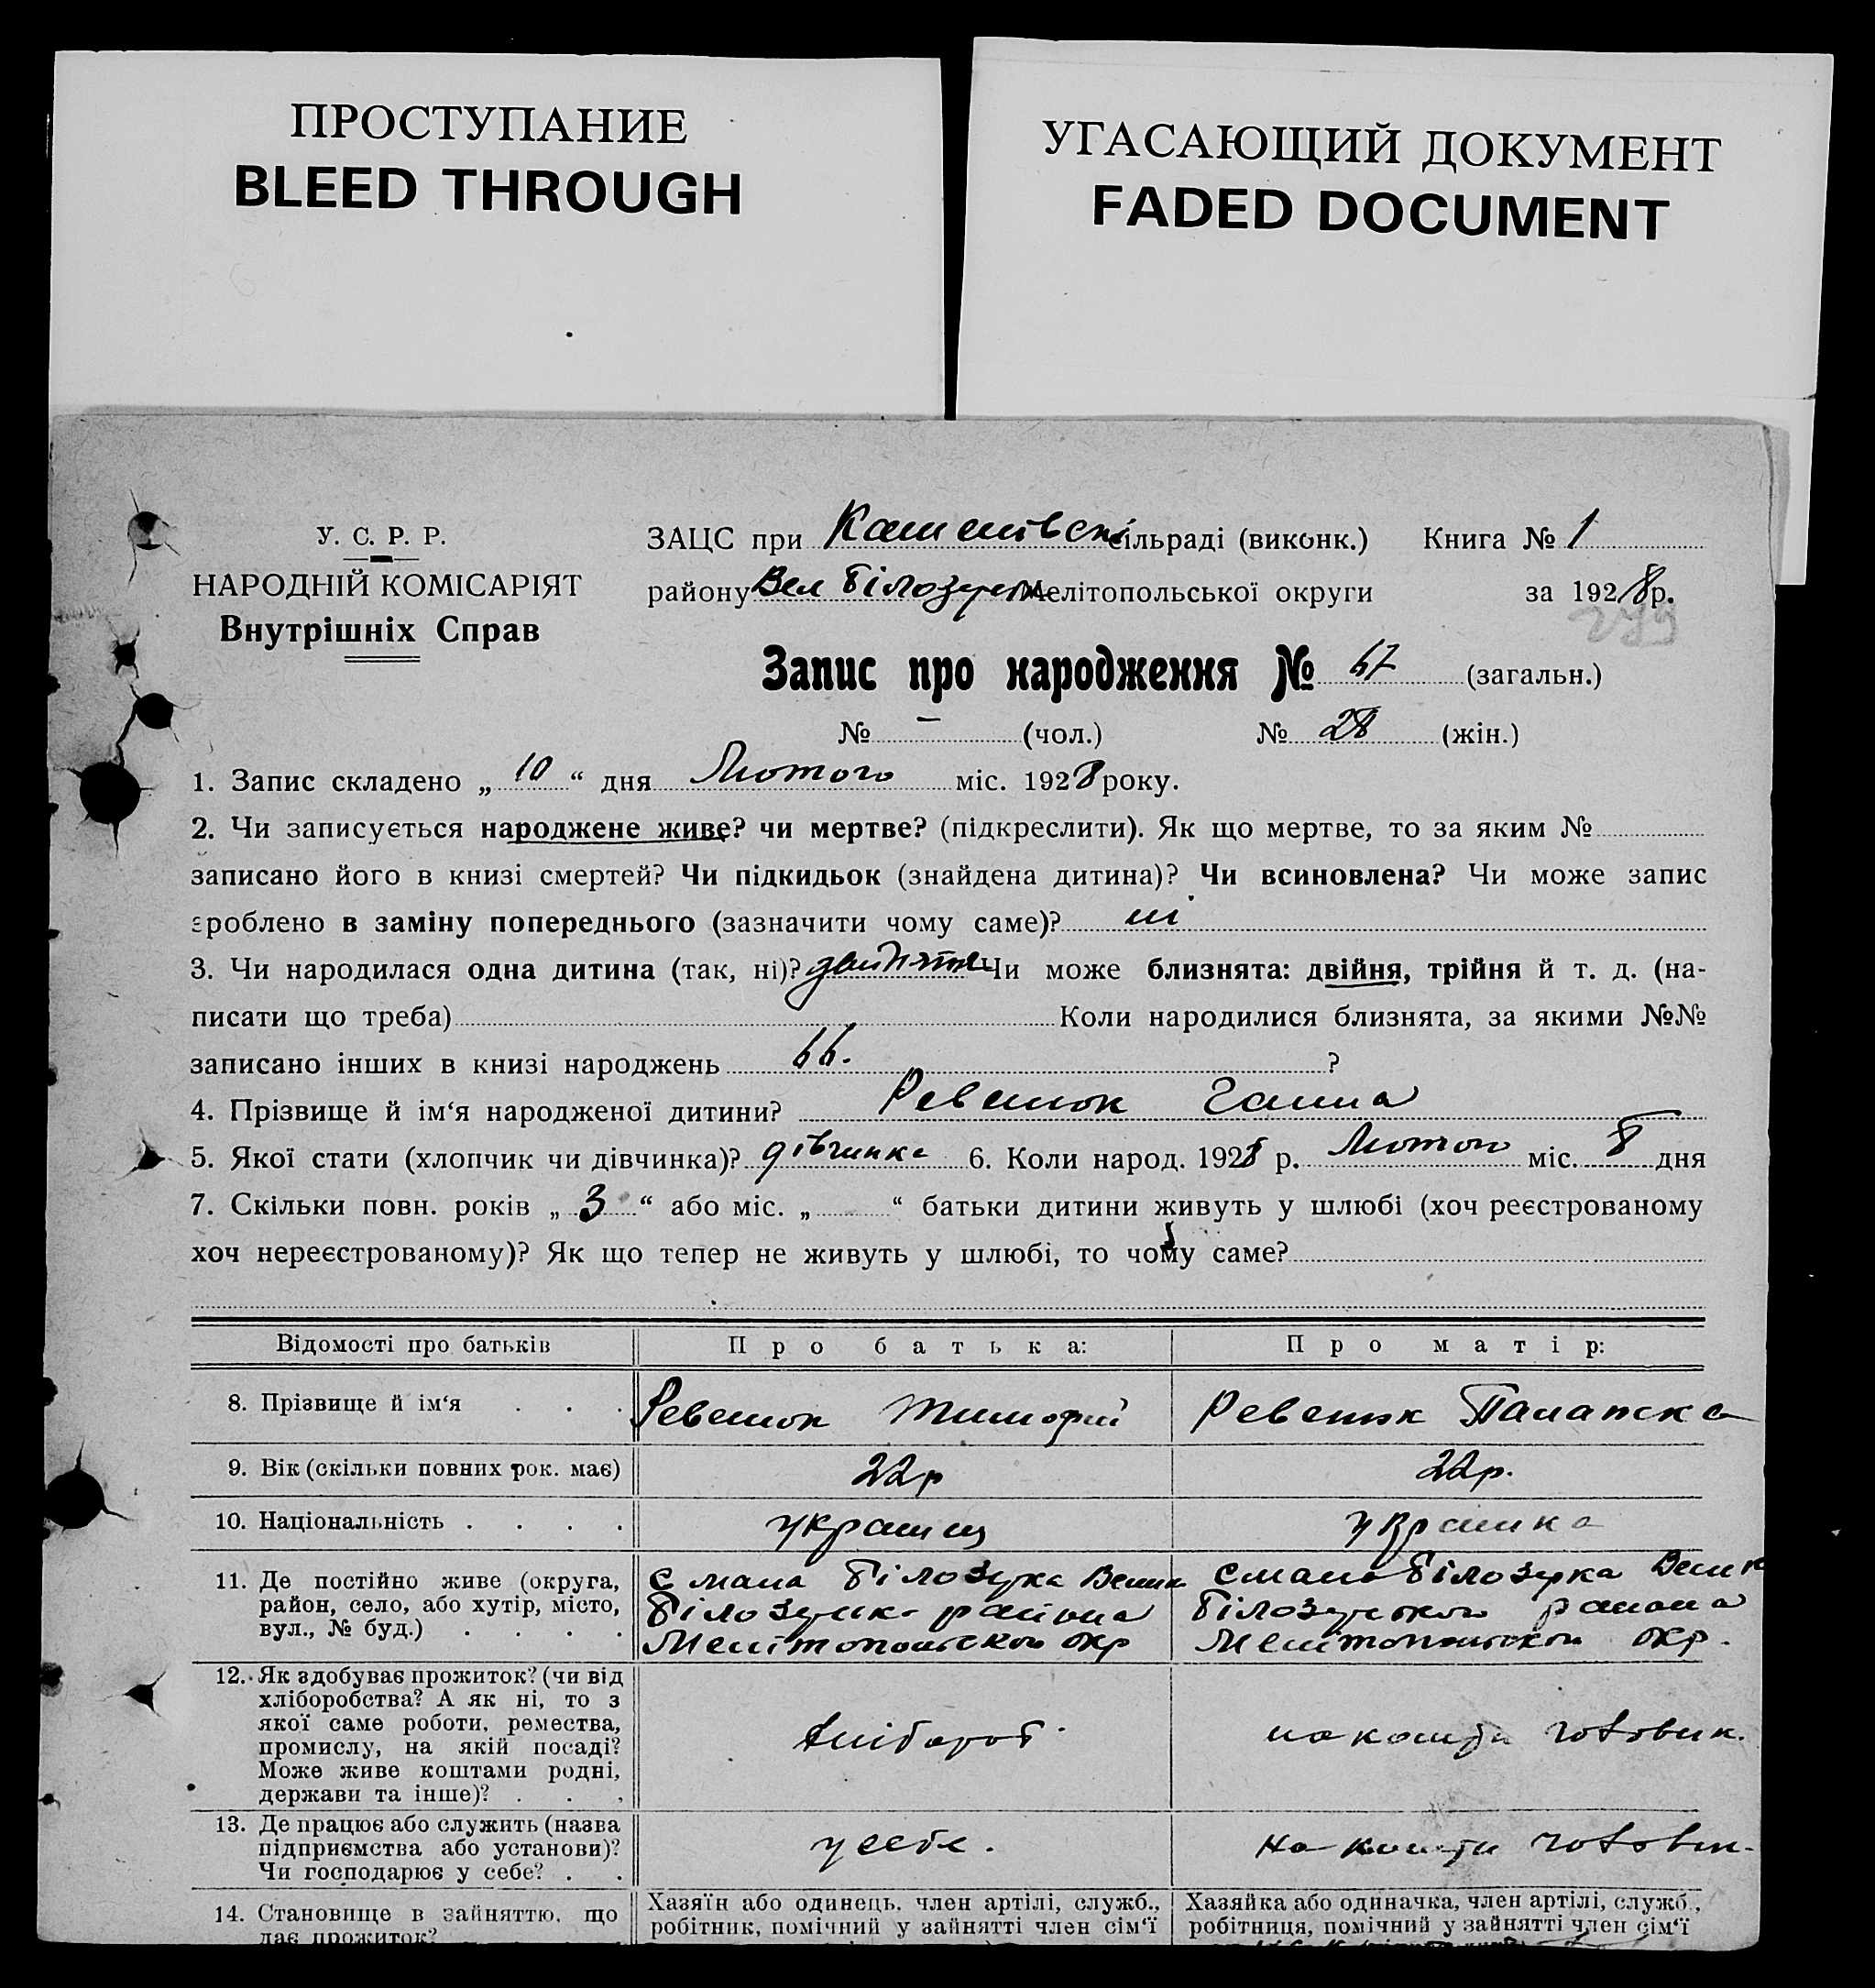 ПРОСТУПАНИЕ
BLEED THROUGH
УГАСАЮЩИЙ ДОКУМЕНТ
FADED DOCUMENT
У. С. Р. Р.
НАРОДНІЙ КОМІСАРІЯТ
Внутрішніх Справ
ЗАЦС при сільраді (виконк.) Книга № 1
району Вел Білозерк Мелітопольської округи за 1928 р.
279
Запис про народження № 67 (загальн.)
№ — (чол.) № 28 (жін.)
1. Запис складено „ 10 “ дня Лютого міс. 1928 року.
2. Чи записується народжене живе? чи мертве? (підкреслити). Як що мертве, то за яким №
записано його в книзі смертей? Чи підкидьок (знайдена дитина)? Чи всиновлена? Чи може запис
зроблено в заміну попереднього (зазначити чому саме)? ні
3. Чи народилася одна дитина (так, ні)? Чи може близнята: двійня, трійня й т. д. (на-
писати що треба) Коли народилися близнята, за якими №№
записано інших в книзі народжень 66. ?
4. Прізвище й ім‘я народженої дитини? Ревенюк Ганна
5. Якої стати (хлопчик чи дівчинка)? дівчинка 6. Коли народ. 1928 р. Лютого міс. 8 дня
7. Скільки повн. років „ 3 “ або міс. „ “ батьки дитини живуть у шлюбі (хоч реєстрованому
хоч нереєстрованому)? Як що тепер не живуть у шлюбі, то чому саме?
Відомості про батьків Про батька: Про матір:
8. Прізвище й ім‘я . . . Ревенюк Тимофій Ревенюк Палажка
9. Вік (скільки повних рок. має) 22р 22р.
10. Національність . . . . українц українка
11. Де постійно живе (округа,
район, село, або хутір, місто,
вул., № буд.) . . . .
с мала Білозерка Велик
Білозерськ района
Мелітопольской окр
с мала Білозерка Велик
Білозерського района
Мелітопольской окр.
12. Як здобуває прожиток? (чи від
хліборобства? А як ні, то з
якої саме роботи, ремества,
промислу, на якій посаді?
Може живе коштами родні,
держави та інше)? . . .
хлібороб
на кошти чоловік.
13. Де працює або служить (назва
підприємства або установи)?
Чи господарює у себе? . .
у себе.
на кошти чоловік.
14. Становище в зайняттю, що
дає прожиток?
Хазяїн або одинець, член артілі, служб.,
робітник, помічний у зайнятті член сім‘ї
Хазяйка або одиначка, член артілі, служб.,
робітниця, помічний у зайнятті член сім‘ї